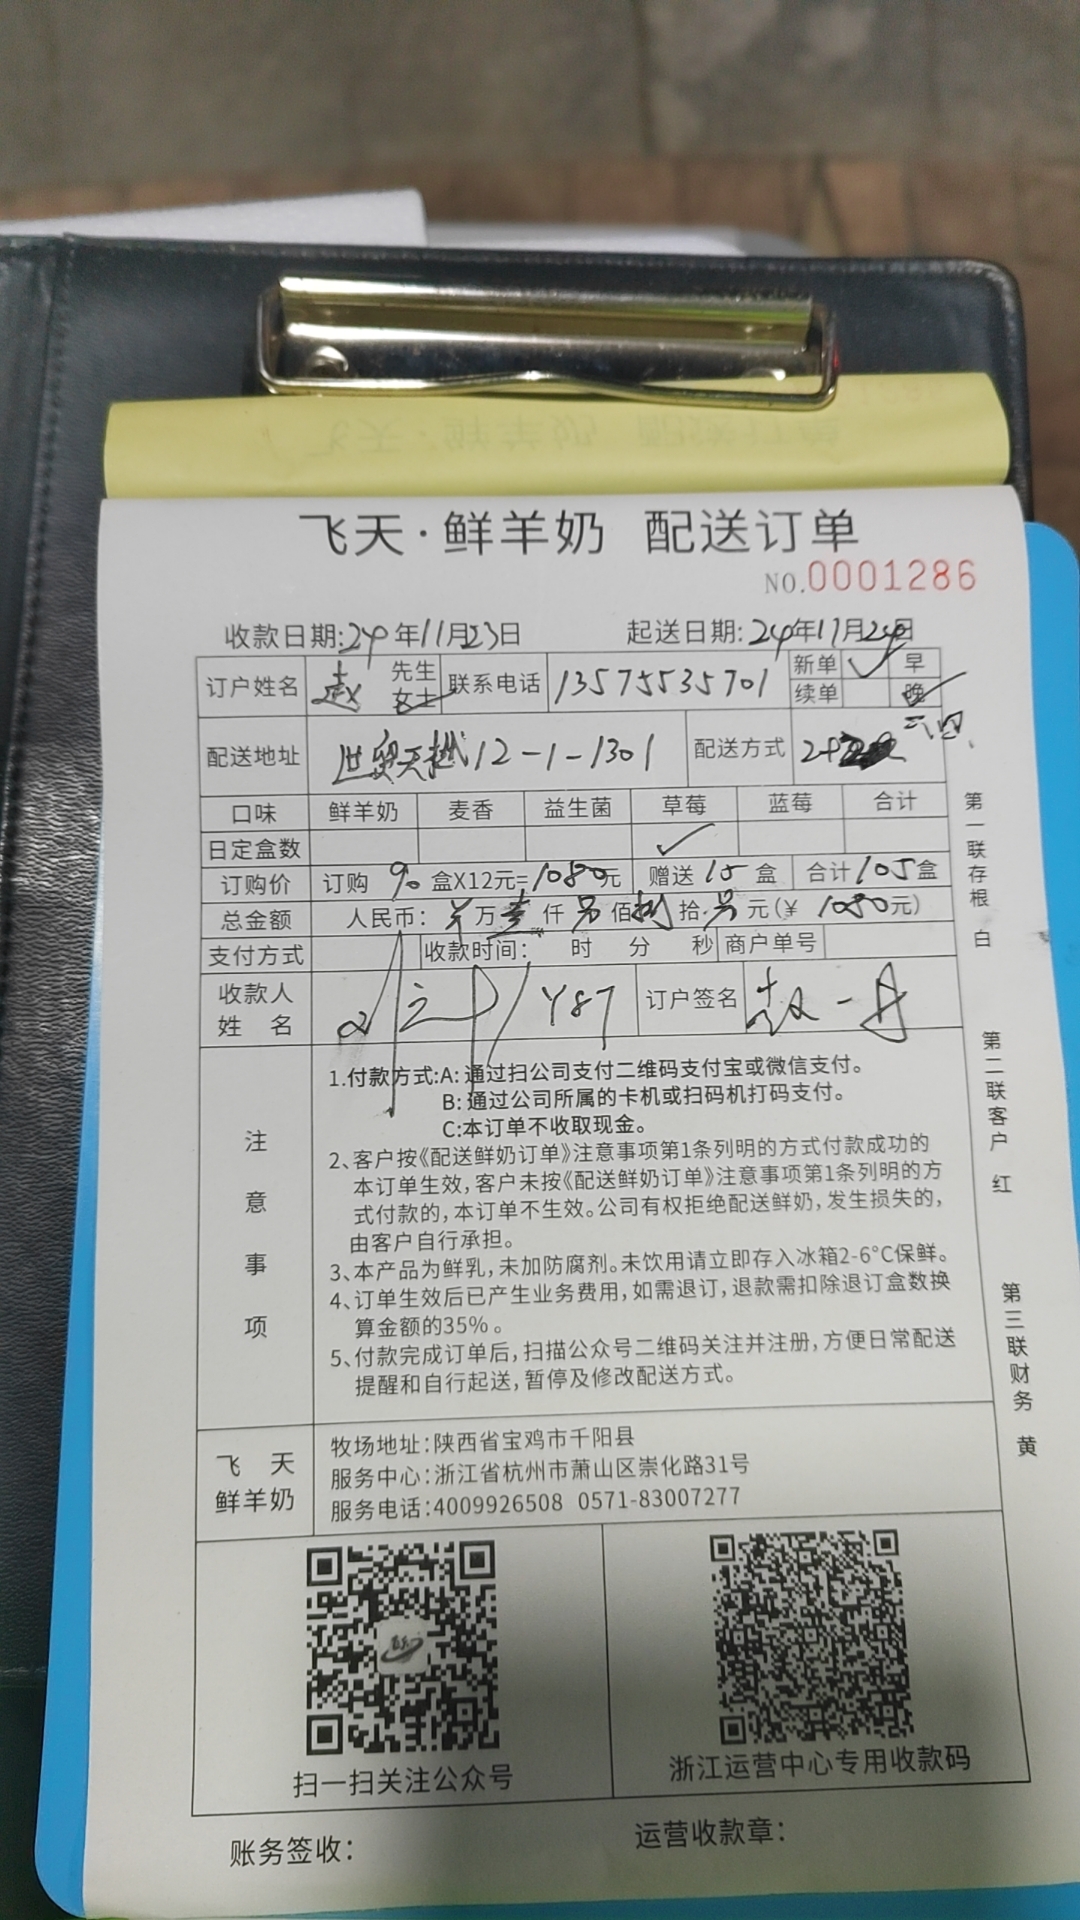 飞天·鲜羊奶 配送订单
NO.0001286
收款日期:24年11月23日 起送日期:24年11月24日
订户姓名 赵 先生 女士 联系电话 13575535701 新单 ✓ 早
续单 晚
配送地址 世贸天樾12-1-1301 配送方式 三、四、
口味 鲜羊奶 麦香 益生菌 草莓 蓝莓 合计
日定盒数 ✓
订购价 订购 90 盒X12元=1080元 赠送 15 盒 合计105盒
总金额 人民币: 万 壹 仟 佰 捌 拾 元(¥ 1080元)
支付方式 收款时间: 时 分 秒 商户单号
收款人 姓 名 Y87 订户签名
注意事项
1.付款方式:A: 通过扫公司支付二维码支付宝或微信支付。
B: 通过公司所属的卡机或扫码机打码支付。
C:本订单不收取现金。
2、客户按《配送鲜奶订单》注意事项第1条列明的方式付款成功的
本订单生效,客户未按《配送鲜奶订单》注意事项第1条列明的方
式付款的,本订单不生效。公司有权拒绝配送鲜奶,发生损失的,
由客户自行承担。
3、本产品为鲜乳,未加防腐剂。未饮用请立即存入冰箱2-6°C保鲜。
4、订单生效后已产生业务费用,如需退订,退款需扣除退订盒数换
算金额的35%。
5、付款完成订单后,扫描公众号二维码关注并注册,方便日常配送
提醒和自行起送,暂停及修改配送方式。
飞天
鲜羊奶
牧场地址:陕西省宝鸡市千阳县
服务中心:浙江省杭州市萧山区崇化路31号
服务电话:4009926508 0571-83007277
扫一扫关注公众号
浙江运营中心专用收款码
账务签收:
运营收款章:
第一联存根 白
第二联客户 红
第三联财务 黄